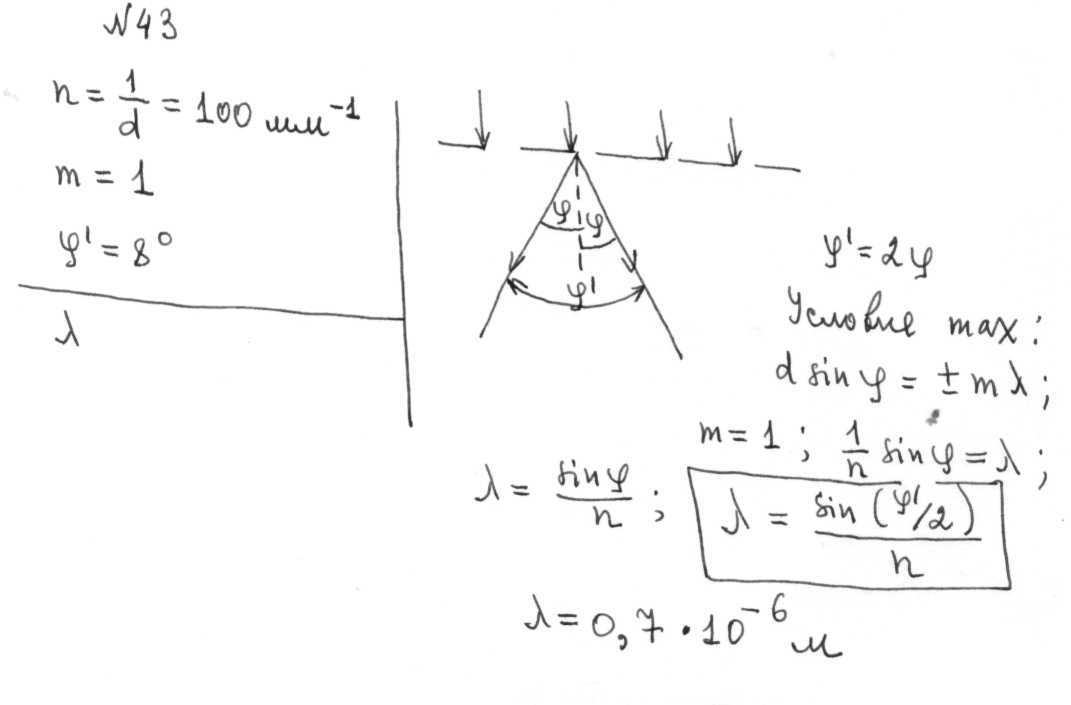 №43
n = 1/d = 100 мм⁻¹
m = 1
φ' = 8°
λ
φ φ
φ'
φ' = 2φ
Условие max:
d sin φ = ± m λ;
m = 1; 1/n sin φ = λ;
λ = sin φ / n; λ = sin (φ'/2) / n
λ = 0,7 · 10⁻⁶ м